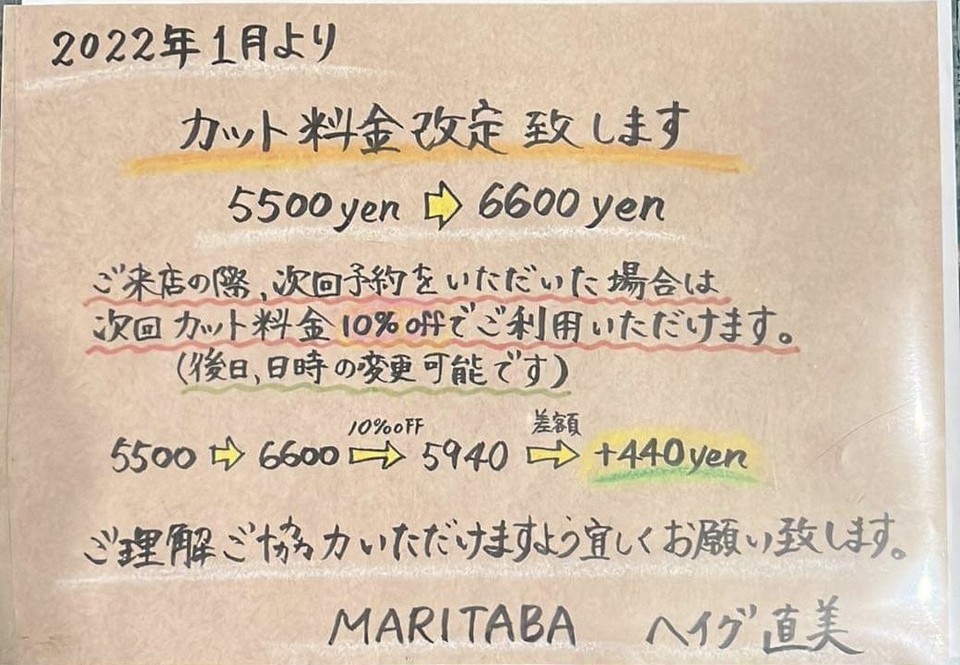 2022年1月より
カット料金改定致します
5500yen ⇨ 6600yen
ご来店の際、次回予約をいただいた場合は
次回カット料金10%offでご利用いただけます。
(後日、日時の変更可能です)
10%OFF 差額
5500 ⇨ 6600 ⇨ 5940 ⇨ +440yen
ご理解ご協力いただけますよう宜しくお願い致します。
MARITABA ヘイグ直美